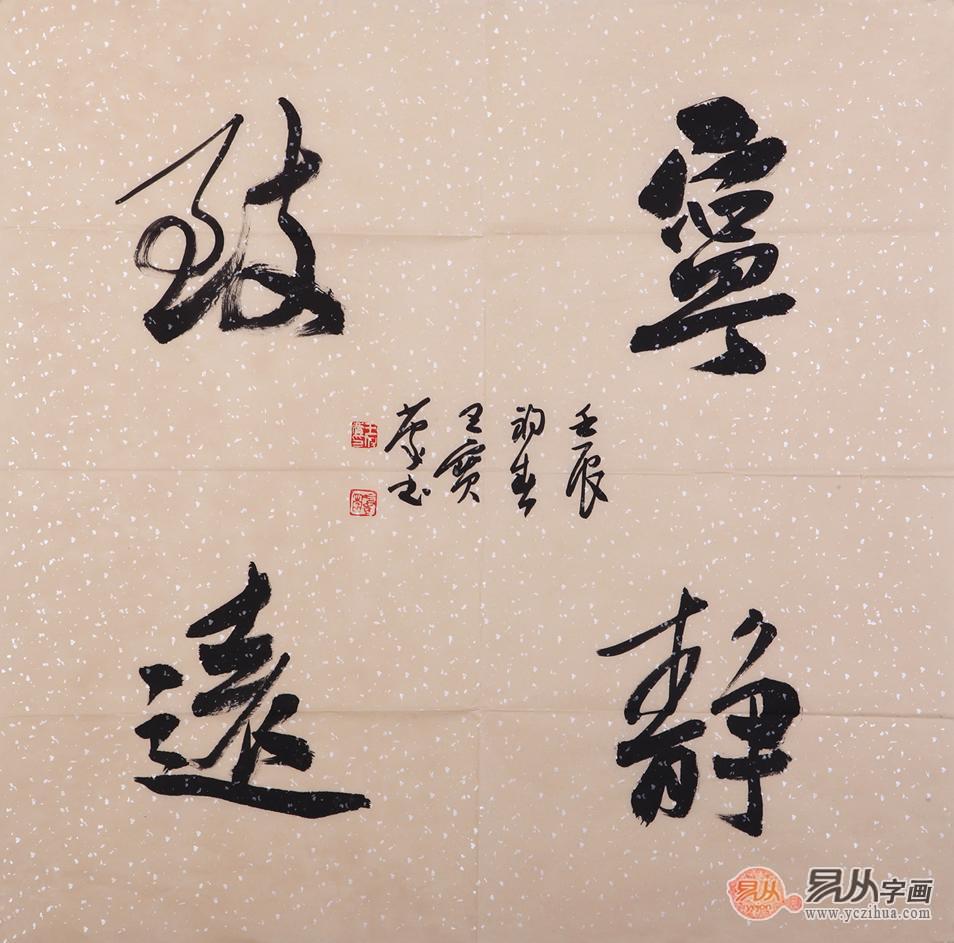 寧靜
致遠
壬辰
初春
王寶
蒙书
易从
易从字画
www.yczihua.com